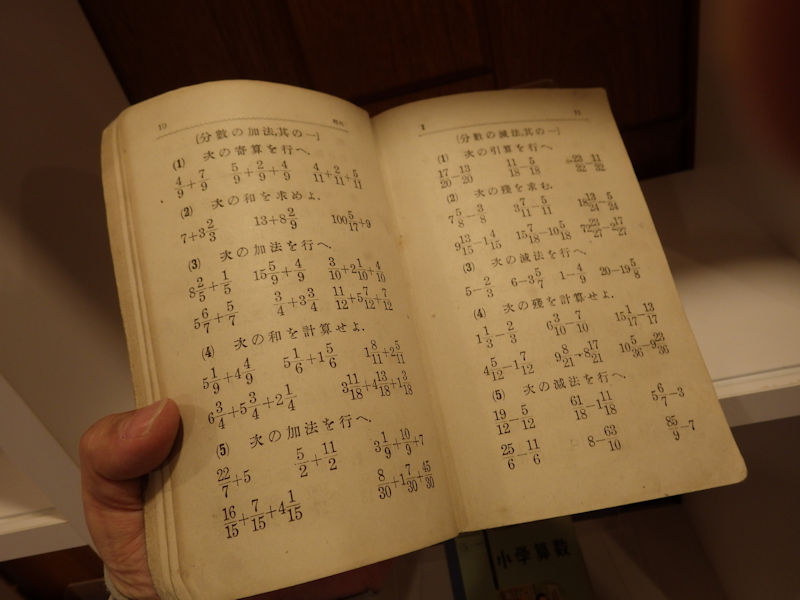 10
(分數の加法,其の一)
(1) 次の寄算を行へ.
4/9+7/9 5/9+2/9+4/9 4/11+2/11+5/11
(2) 次の和を求めよ.
7+3 2/3 13+8 2/9 100 5/17+9
(3) 次の加法を行へ.
8 2/5+1/5 15 5/9+4/9 3/10+2 1/10+4/10
5 6/7+5/7 3/4+3 3/4 11/12+5 7/12+7/12
(4) 次の和を計算せよ.
5 1/9+4 4/9 5 1/6+1 5/6 1 8/11+2 5/11
6 3/4+5 3/4+2 1/4 3 11/18+4 13/18+1 3/18
(5) 次の加法を行へ.
22/7+5 5/2+11/2 3 1/9+10/9+7
16/15+7/15+4 1/15 8/30+1 7/30+45/30
11
(分數の減法,其の一)
(1) 次の引算を行へ.
17/20−13/20 11/18−5/18 23/32−11/32
(2) 次の殘を求む.
7 5/8−3/8 3 7/11−5/11 18 13/24−5/24
9 13/15−1 4/15 15 7/18−10 5/18 72 23/27−2 17/27
(3) 次の減法を行へ.
5−2/3 6−3 5/7 1−4/9 20−19 5/8
(4) 次の殘を計算せよ.
1 1/3−2/3 6 3/10−7/10 15 1/17−13/17
4 5/12−1 7/12 9 8/21−8 17/21 10 5/36−9 23/36
(5) 次の減法を行へ.
19/12−5/12 61/18−1 11/18 5 6/7−3
25/6−11/6 8−63/10 85/9−7
小學算數